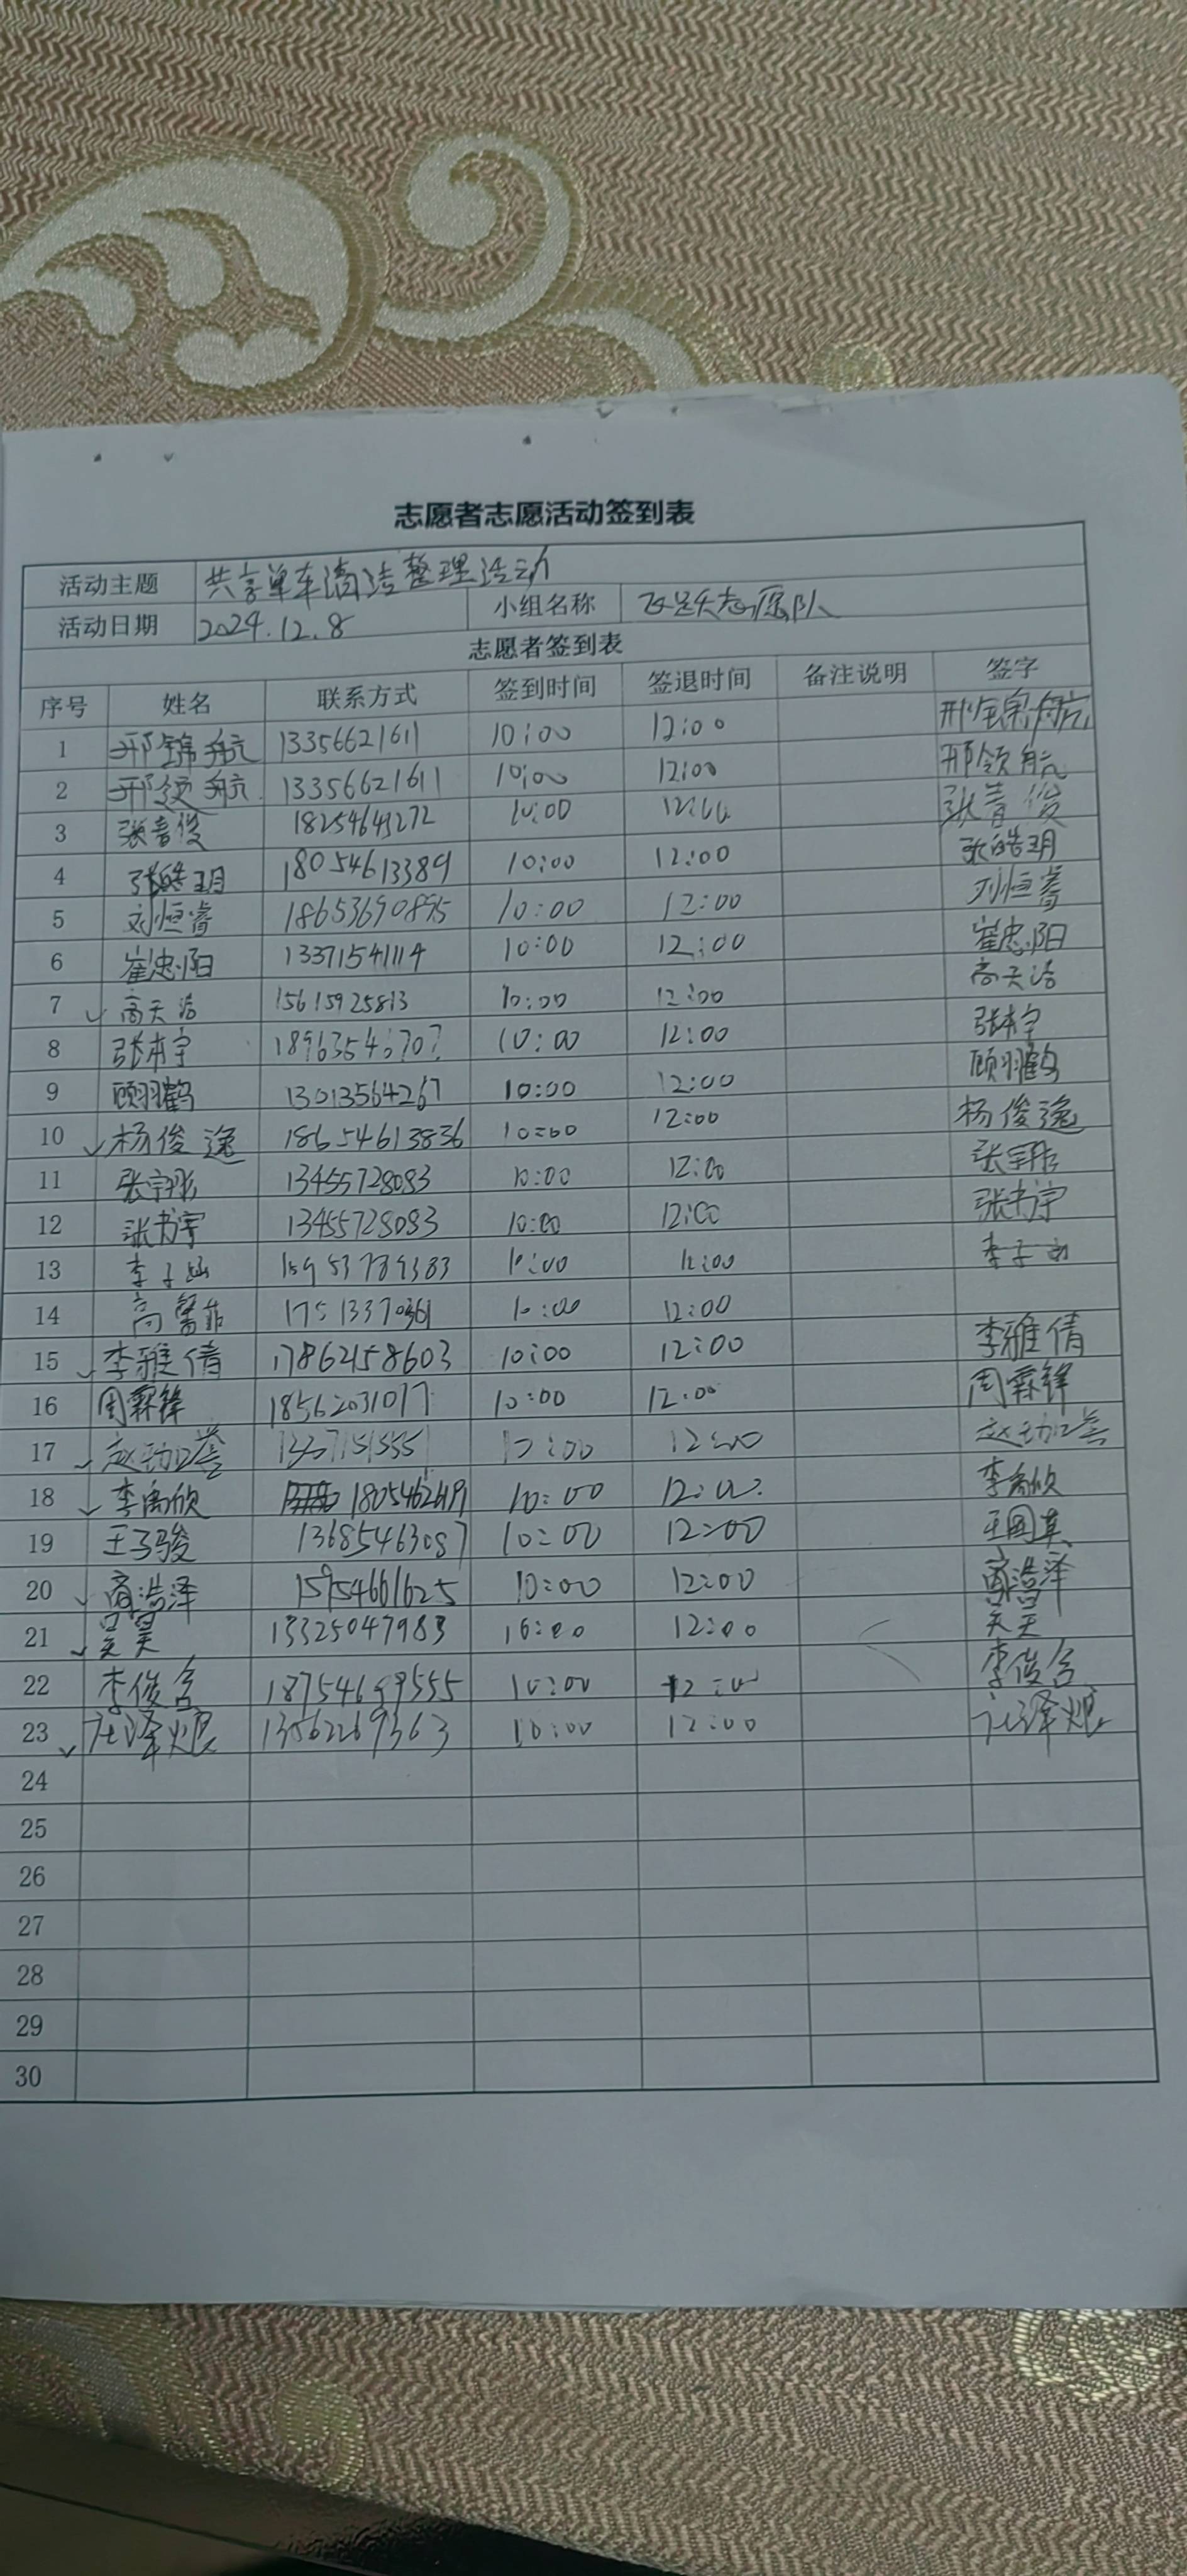 志愿者志愿活动签到表
活动主题 共享单车清洁整理活动
活动日期 2024.12.8 小组名称 志愿队
志愿者签到表
序号 姓名 联系方式 签到时间 签退时间 备注说明 签字
1 邢锦航 13356621611 10:00 12:00
2 邢领航 13356621611 10:00 12:00 邢领航
3 张音俊 18254641272 10:00 12:00 张音俊
4 张皓玥 18054613389 10:00 12:00 张皓玥
5 刘恒睿 18653690895 10:00 12:00 刘恒睿
6 崔忠阳 13371541114 10:00 12:00 崔忠阳
7 高天浩 15615925813 10:00 12:00 高天浩
8 张本宇 10:00 12:00 张本宇
9 顾羽鹤 13013564267 10:00 12:00 顾羽鹤
10 杨俊逸 18654613836 10:00 12:00 杨俊逸
11 张宇彤 13455728083 10:00 12:00 张宇彤
12 张书宇 13455728083 10:00 12:00 张书宇
13 李子 15953789383 10:00 12:00 李子
14 高馨菲 17513370361 10:00 12:00
15 李雅倩 17862158603 10:00 12:00 李雅倩
16 周霖锋 18562031077 10:00 12:00 周霖锋
17 赵 10:00 12:00 赵
18 李禹欣 10:00 12:00 李禹欣
19 王子骏 13685463087 10:00 12:00 王国真
20 商浩泽 15954661625 10:00 12:00 商浩泽
21 吴昊 13325047983 10:00 12:00
22 李俊含 18754699555 10:00 12:00 李俊含
23 13562269363 10:00 12:00
24
25
26
27
28
29
30